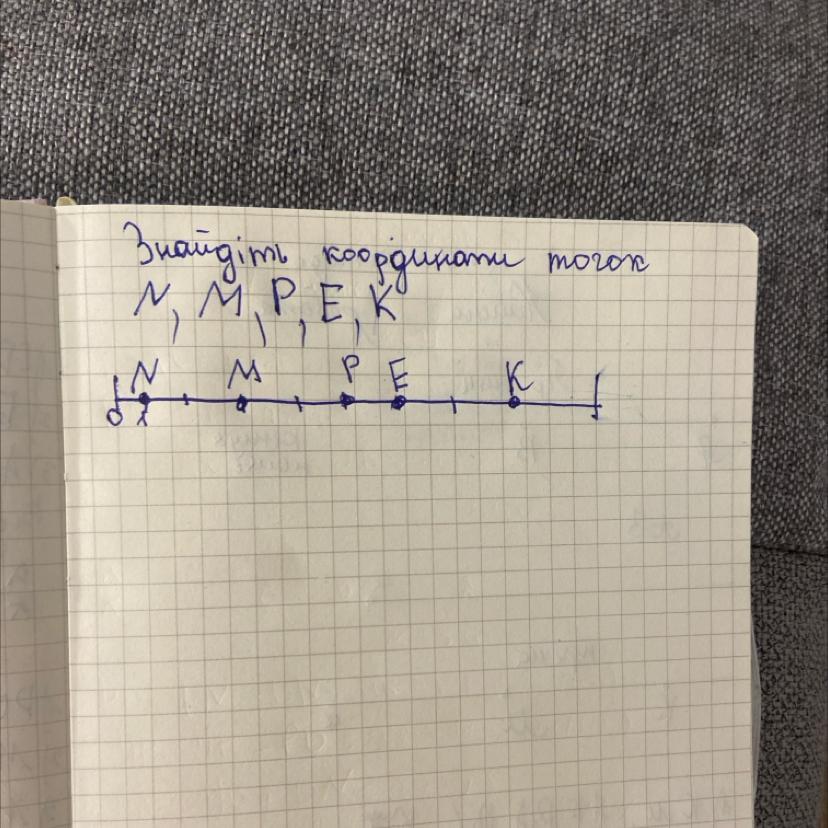 Знайдіть координати точок
N, M, P, E, K
N M P E K
0 1